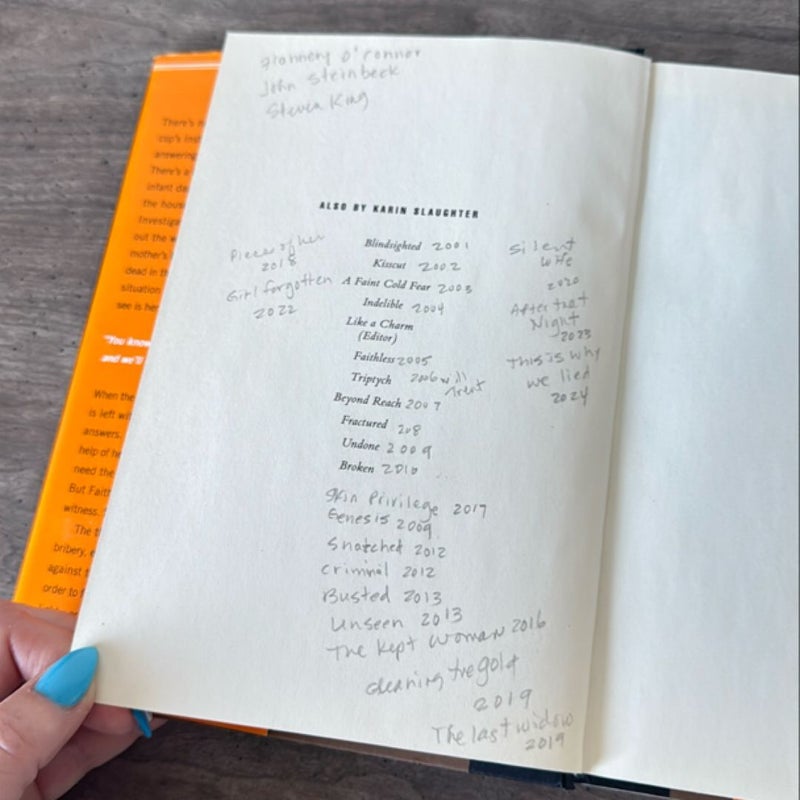 Flannery O'Connor
John Steinbeck
Steven King
There's
cop's inst
answering
There's a
infant da
the house
Investiga
out the w
mother's
dead in th
situation
see is her
"You know
and we'll
When the
is left wit
answers.
help of he
need the
But Faith
witness.
The t
bribery, e
against t
order to f
ALSO BY KARIN SLAUGHTER
Blindsighted 2001
Kisscut 2002
A Faint Cold Fear 2003
Indelible 2004
Like a Charm
(Editor)
Faithless 2005
Triptych 2006 will
trent
Beyond Reach 2007
Fractured 208
Undone 2009
Broken 2010
Pieces of her
2018
Girl forgotten
2022
Silent
Wife
2020
After that
Night
2023
This is why
we lied
2024
Skin Privilege 2017
Genesis 2009
Snatched 2012
Criminal 2012
Busted 2013
Unseen 2013
The Kept Woman 2016
cleaning the gold
2019
The last widow
2019